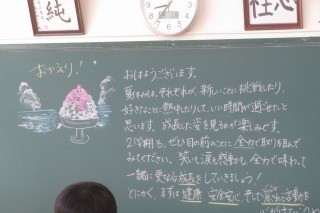 純
おかえり!
おはようございます。
夏休みは、それぞれが、新しいことに挑戦したり、
好きなことに熱中したりして、いい時間が過ごせたと
思います。成長した姿を見るのが楽しみです。
2学期も、ぜひ目の前のことに全力で取り組んで
みてください。笑いも涙も感動も、全力で味わって
一緒に更なる成長をしていきましょう!
とにかく、まずは健康 安全安心、そして